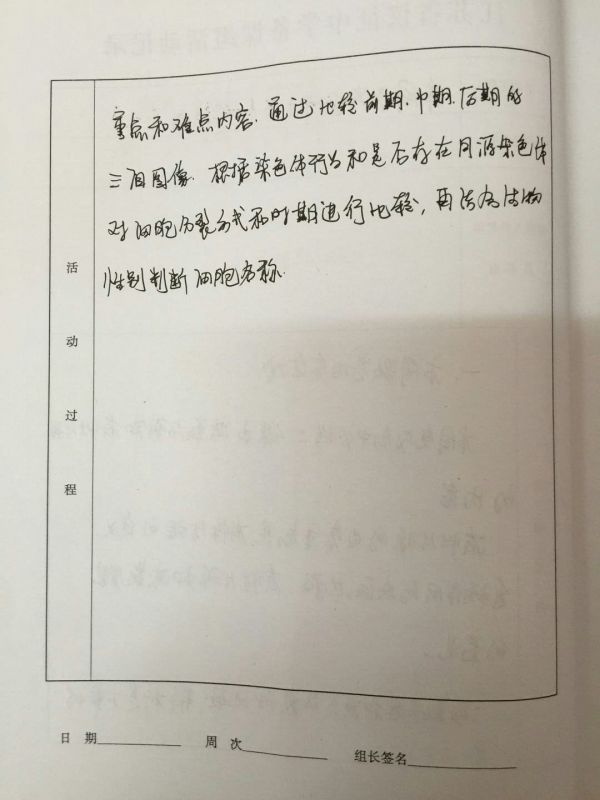 重点和难点内容. 通过比较前期. 中期. 后期的
三组图像. 根据染色体行为和是否存在同源染色体
对细胞分裂方式和时期进行比较, 再结合生物
性别判断细胞名称.
活
动
过
程
日 期
周 次
组长签名